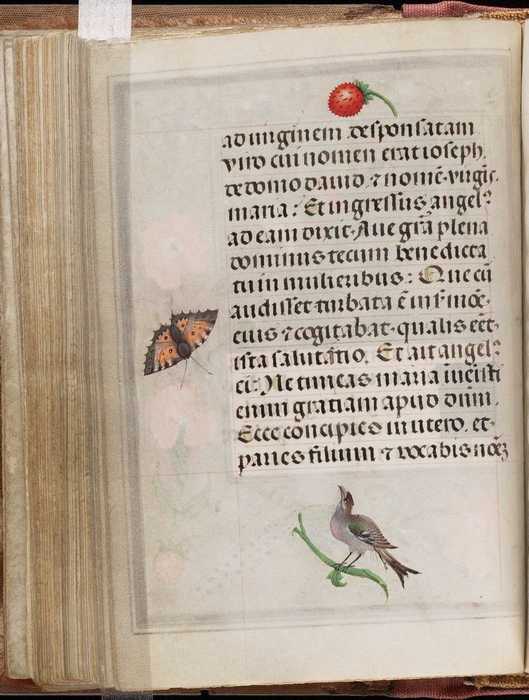 ad uirginem desponsatam
viro cui nomen erat ioseph.
de domo dauid ⁊ nomē virgīs
maria: Et ingressus angelꝰ
ad eam dixit. Aue grā plena
dominus tecum benedicta
tu in mulieribus: Que cū
audisset turbata ē in sermōe
eius ⁊ cogitabat. qualis eēt
ista salutatio. Et ait angelꝰ
ei: Ne timeas maria īuenisti
enim gratiam apud dūm.
Ecce concipies in utero. et
paries filium ⁊ vocabis nomē